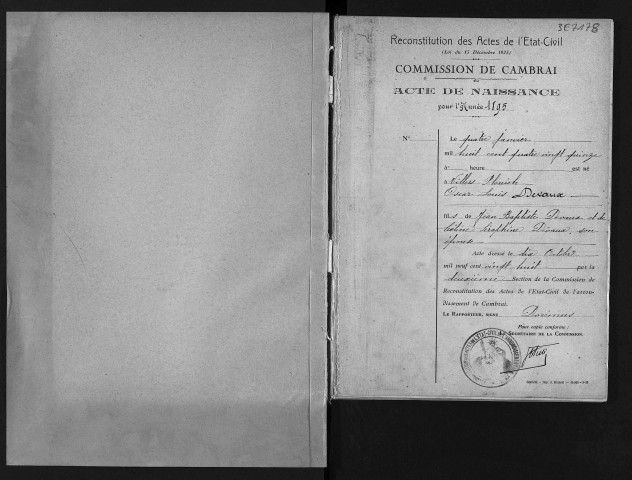 3E7178
Reconstitution des Actes de l'Etat-Civil
(Loi du 15 Décembre 1923)
COMMISSION DE CAMBRAI
ACTE DE NAISSANCE
pour l'Année 1895
N°
Le quatre janvier
mil huit cent quatre vingt quinze
à heure est né
à Villers-Plouich
Oscar Louis Devaux
fils de Jean Baptiste Devaux et de
Séraphine Devaux, son
épouse
Acte dressé le dix Octobre
mil neuf cent vingt huit par la
deuxième Section de la Commission de
Reconstitution des Actes de l'Etat-Civil de l'arron-
dissement de Cambrai.
LE RAPPORTEUR, SIGNÉ
Pour copie conforme :
LE SECRÉTAIRE DE LA COMMISSION,